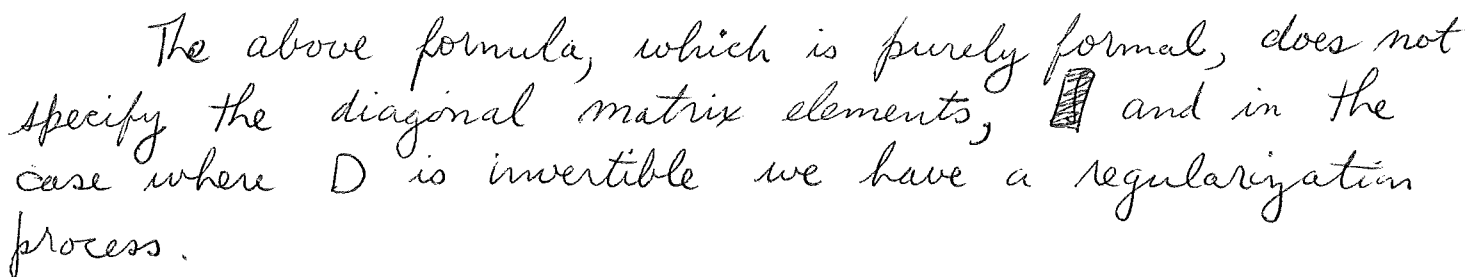 The above formula, which is purely formal, does not
specify the diagonal matrix elements, and in the
case where D is invertible we have a regularization
process.